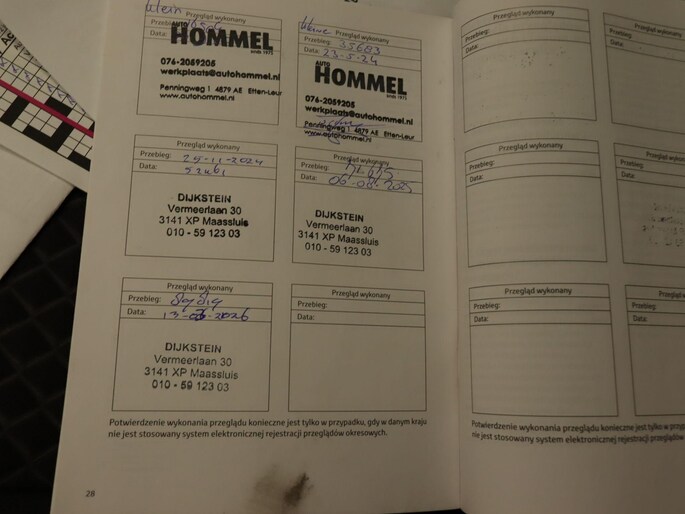 Klein
Przegląd wykonany
Przebieg:
Data:
AUTO
HOMMEL
sinds 1972
076-2059205
werkplaats@autohommel.nl
Penningweg 1 4879 AE Etten-Leur
www.autohommel.nl
Przegląd wykonany
Przebieg: 55683
Data: 23-5-24
AUTO
HOMMEL
sinds 1972
076-2059205
werkplaats@autohommel.nl
Penningweg 1 4879 AE Etten-Leur
www.autohommel.nl
Przegląd wykonany
Przebieg: 25-11-2024
Data:
DIJKSTEIN
Vermeerlaan 30
3141 XP Maassluis
010 - 59 123 03
Przegląd wykonany
Przebieg:
Data:
DIJKSTEIN
Vermeerlaan 30
3141 XP Maassluis
010 - 59 123 03
Przegląd wykonany
Przebieg:
Data:
DIJKSTEIN
Vermeerlaan 30
3141 XP Maassluis
010 - 59 123 03
Przegląd wykonany
Przebieg:
Data:
Potwierdzenie wykonania przeglądu konieczne jest tylko w przypadku, gdy w danym kraju
nie jest stosowany system elektronicznej rejestracji przeglądów okresowych.
28
Przegląd wykonany
Przebieg:
Data:
Przegląd
Przebieg:
Data:
Przegląd wykonany
Przebieg:
Data:
Przebieg:
Data:
Przegląd wykonany
Przebieg:
Data:
Przebieg:
Data:
Potwierdzenie wykonania przeglądu konieczne jest tylko w
nie jest stosowany system elektronicznej rejestracji przeglądów